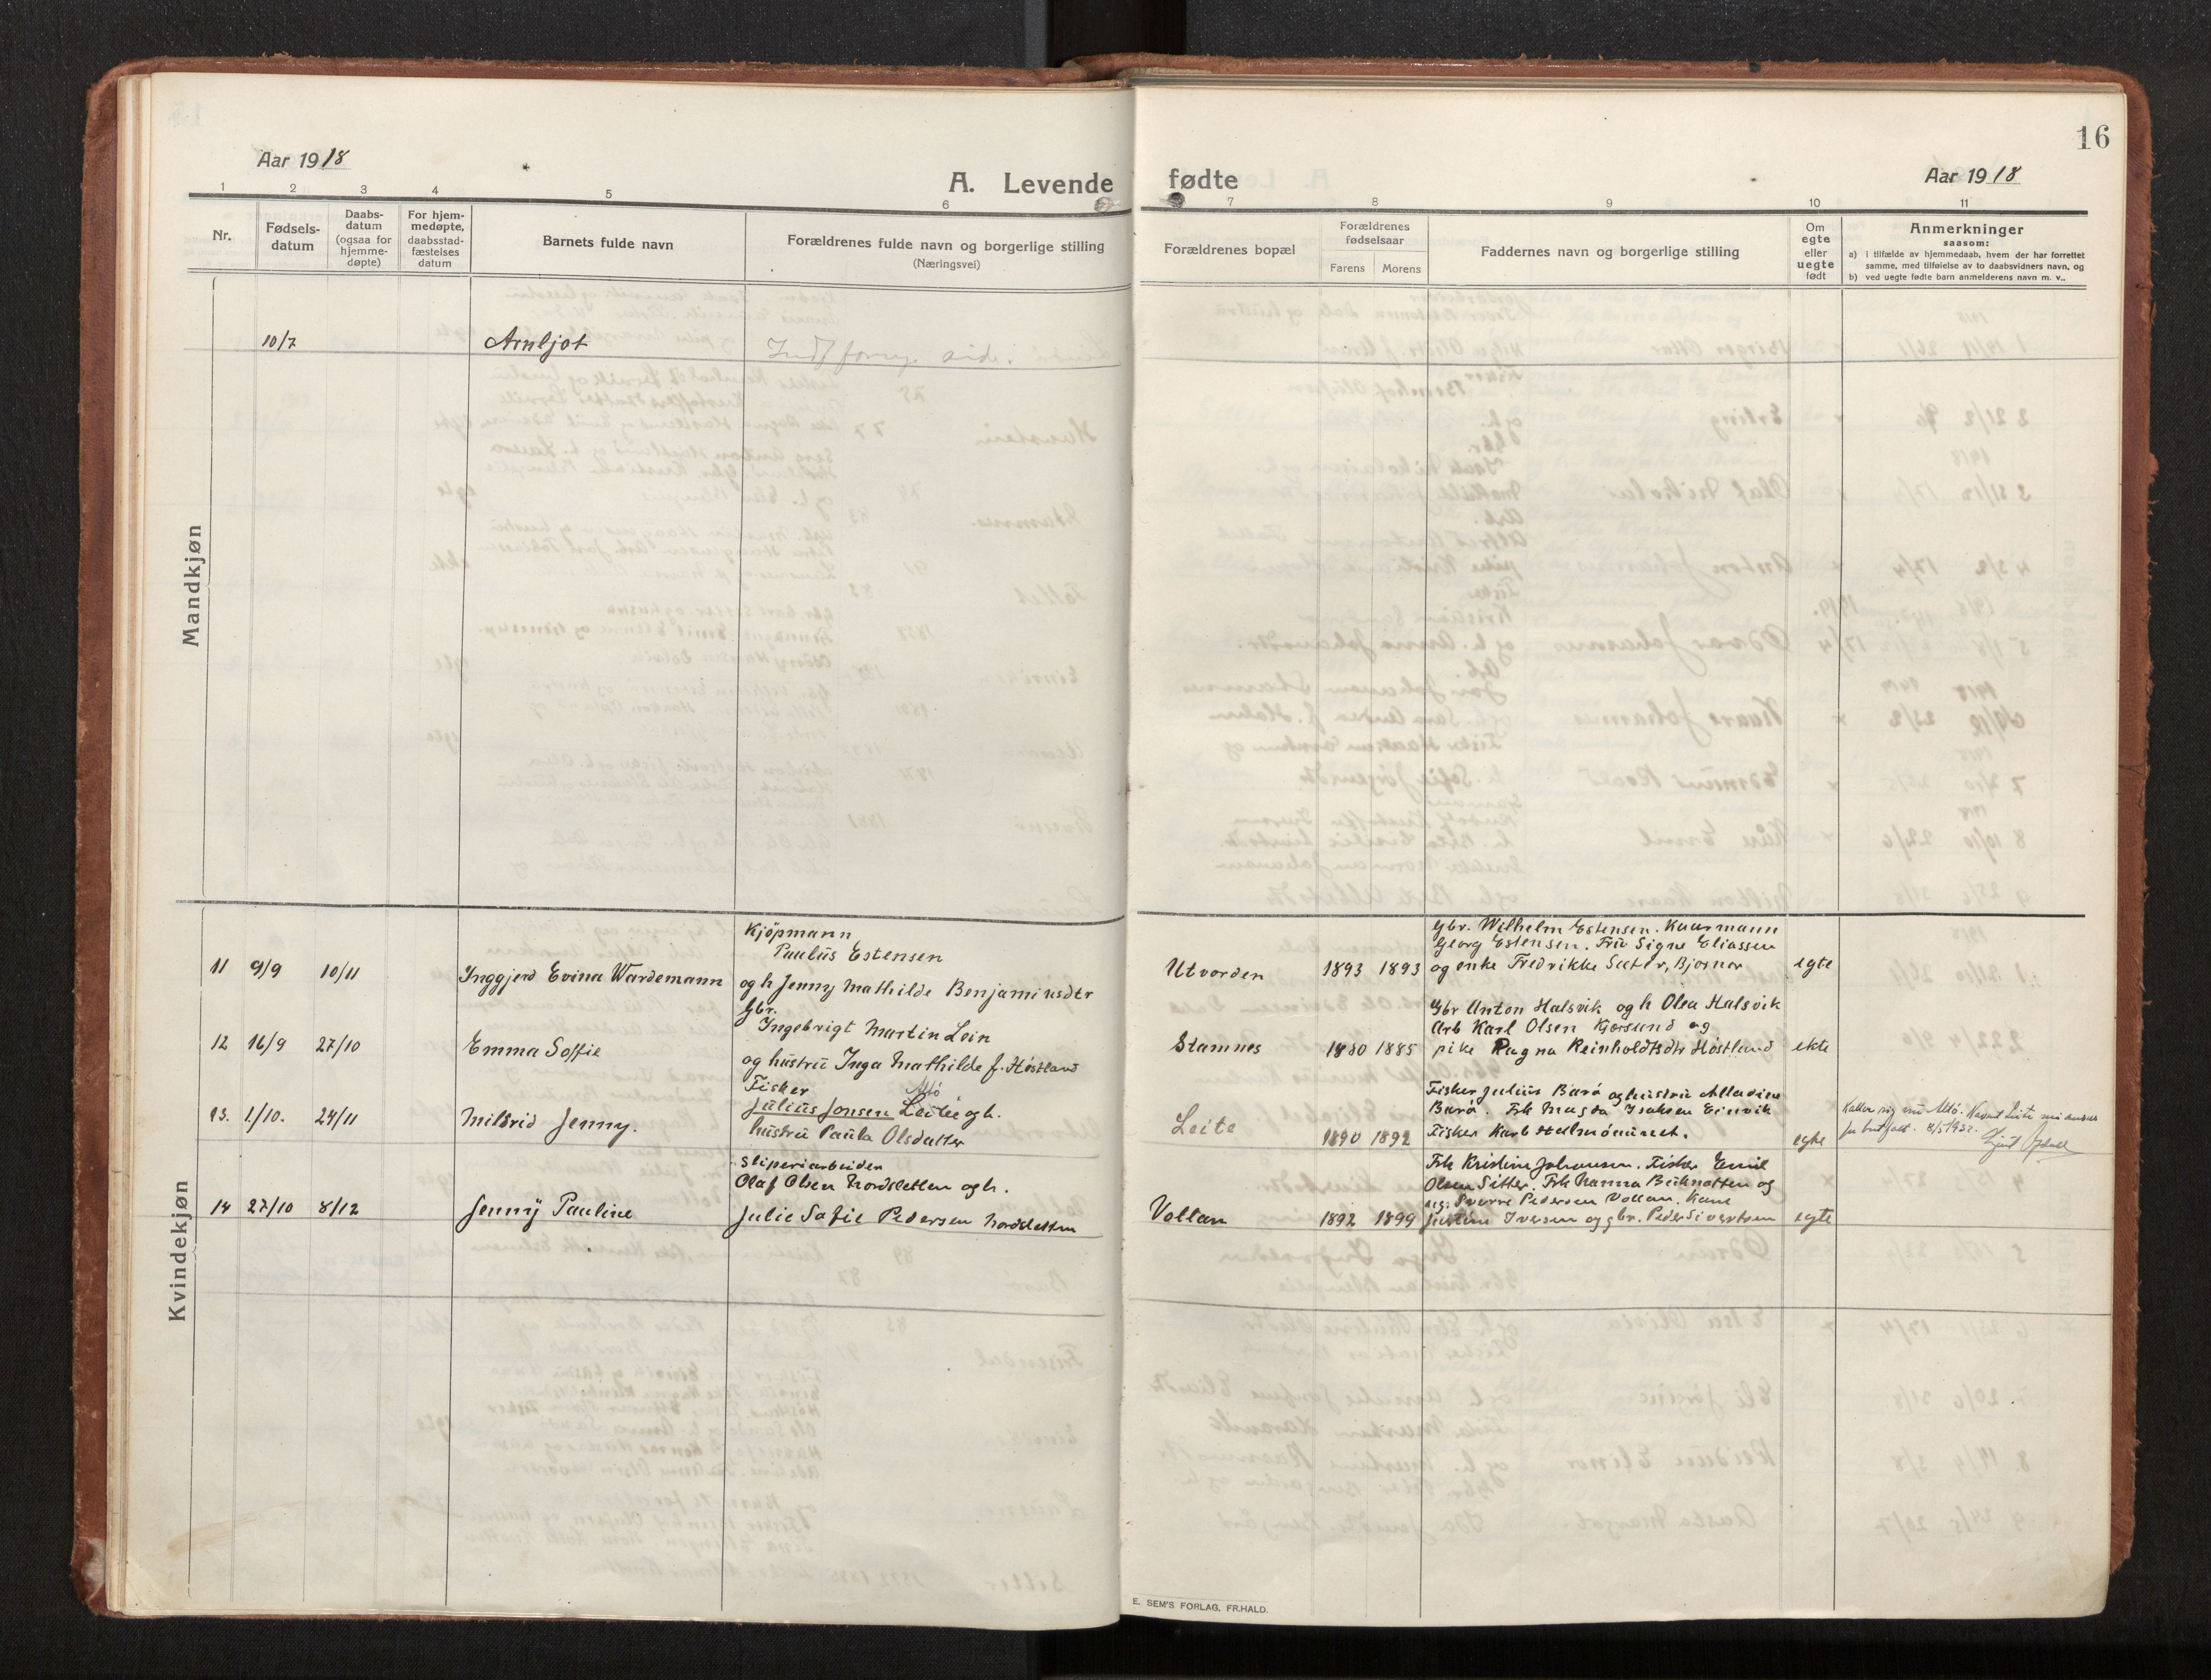 16
Aar 1918
A. Levende fødte
Aar 1918
1 2 3 4 5 6 7 8 9 10 11
Nr.
Fødsels-
datum
Daabs-
datum
(ogsaa for
hjemme-
døpte)
For hjem-
medøpte,
daabsstad-
fæstelses
datum
Barnets fulde navn
Forældrenes fulde navn og borgerlige stilling
(Næringsvei)
Forældrenes bopæl
Forældrenes
fødselsaar
Farens Morens
Faddernes navn og borgerlige stilling
Om
egte
eller
uegte
født
Anmerkninger
saasom:
a) i tilfælde av hjemmedaab, hvem der har forrettet
samme, med tilføielse av to daabsvidners navn, og
b) ved uegte fødte barn anmelderens navn m. v..
Mandkjøn
10/7 Arnljot
Indf forrige side.
Kvindekjøn
11 9/9 10/11 Inggjerd Evina Wardemann
Kjöpmann
Paulus Estensen
og h Jenny Mathilde Benjaminsdtr
Utvorden 1893 1893
Gbr. Wilhelm Estensen.
Georg Estensen. Fru Signe Eliassen
og enke Fredrikke Sæter, Bjørnør
egte
12 16/9 27/10 Emma Soffie
Gbr.
Ingebrigt Martin Lein
og hustru Inga Mathilde f. Höstland
Stamnes 1880 1885
Gbr Anton Halsvik og h Olea Halsvik
Arb Karl Olsen Kjørsund og
pike Ragna Reinholdtsdtr Høstland
ekte
13. 1/10. 24/11 Milsrid Jenny.
Fisker Altö
Julius Jonsen Leite og h.
hustru Paula Olsdatter
Leite 1890 1892
Fisker Julius Barö og hustru Alladine
Barö. Frk Magda Isaksen Einvik
Fisker Karl
egte
Kaller sig nu Altö. Navnet Leite
8/5 1932.
14 27/10 8/12 Jenny Pauline
Sliperiarbeider
Olaf Olsen Nordsletten og h.
Julie Sofie Pedersen Nordsletten
Vollan 1892 1899
Frk Kristine Johansen. Fisker Emil
Olsen Sitter. Frk Hanna Beiknotten og
ug. Sverre Pedersen Vollan. Kone
Justine Iversen og gbr. Peder Sivertsen
egte
E. SEM'S FORLAG, FR.HALD.